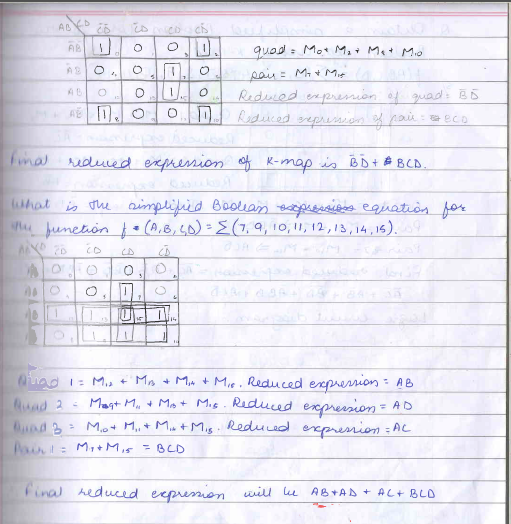 AB CD C̄D̄ C̄D CD CD̄
ĀB̄ 1 0 0 1 quad = M0 + M2 + M8 + M10
ĀB 0 0 1 0 pair = M7 + M15
AB 0 0 1 0 Reduced expression of quad = B̄D̄
AB̄ 1 0 0 1 Reduced expression of pair = BCD
Final reduced expression of K-map is B̄D̄ + BCD.
What is the simplified Boolean expression equation for
the function f (A,B,C,D) = ∑(7, 9, 10, 11, 12, 13, 14, 15).
AB CD C̄D̄ C̄D CD CD̄
0 0 0 0
0 0 1 0
1 1 1 1
0 1 1 1
Quad 1 = M12 + M13 + M14 + M15. Reduced expression = AB
Quad 2 = M9 + M11 + M13 + M15. Reduced expression = AD
Quad 3 = M10 + M11 + M14 + M15. Reduced expression = AC
Pair 1 = M7 + M15 = BCD
Final reduced expression will be AB + AD + AC + BCD